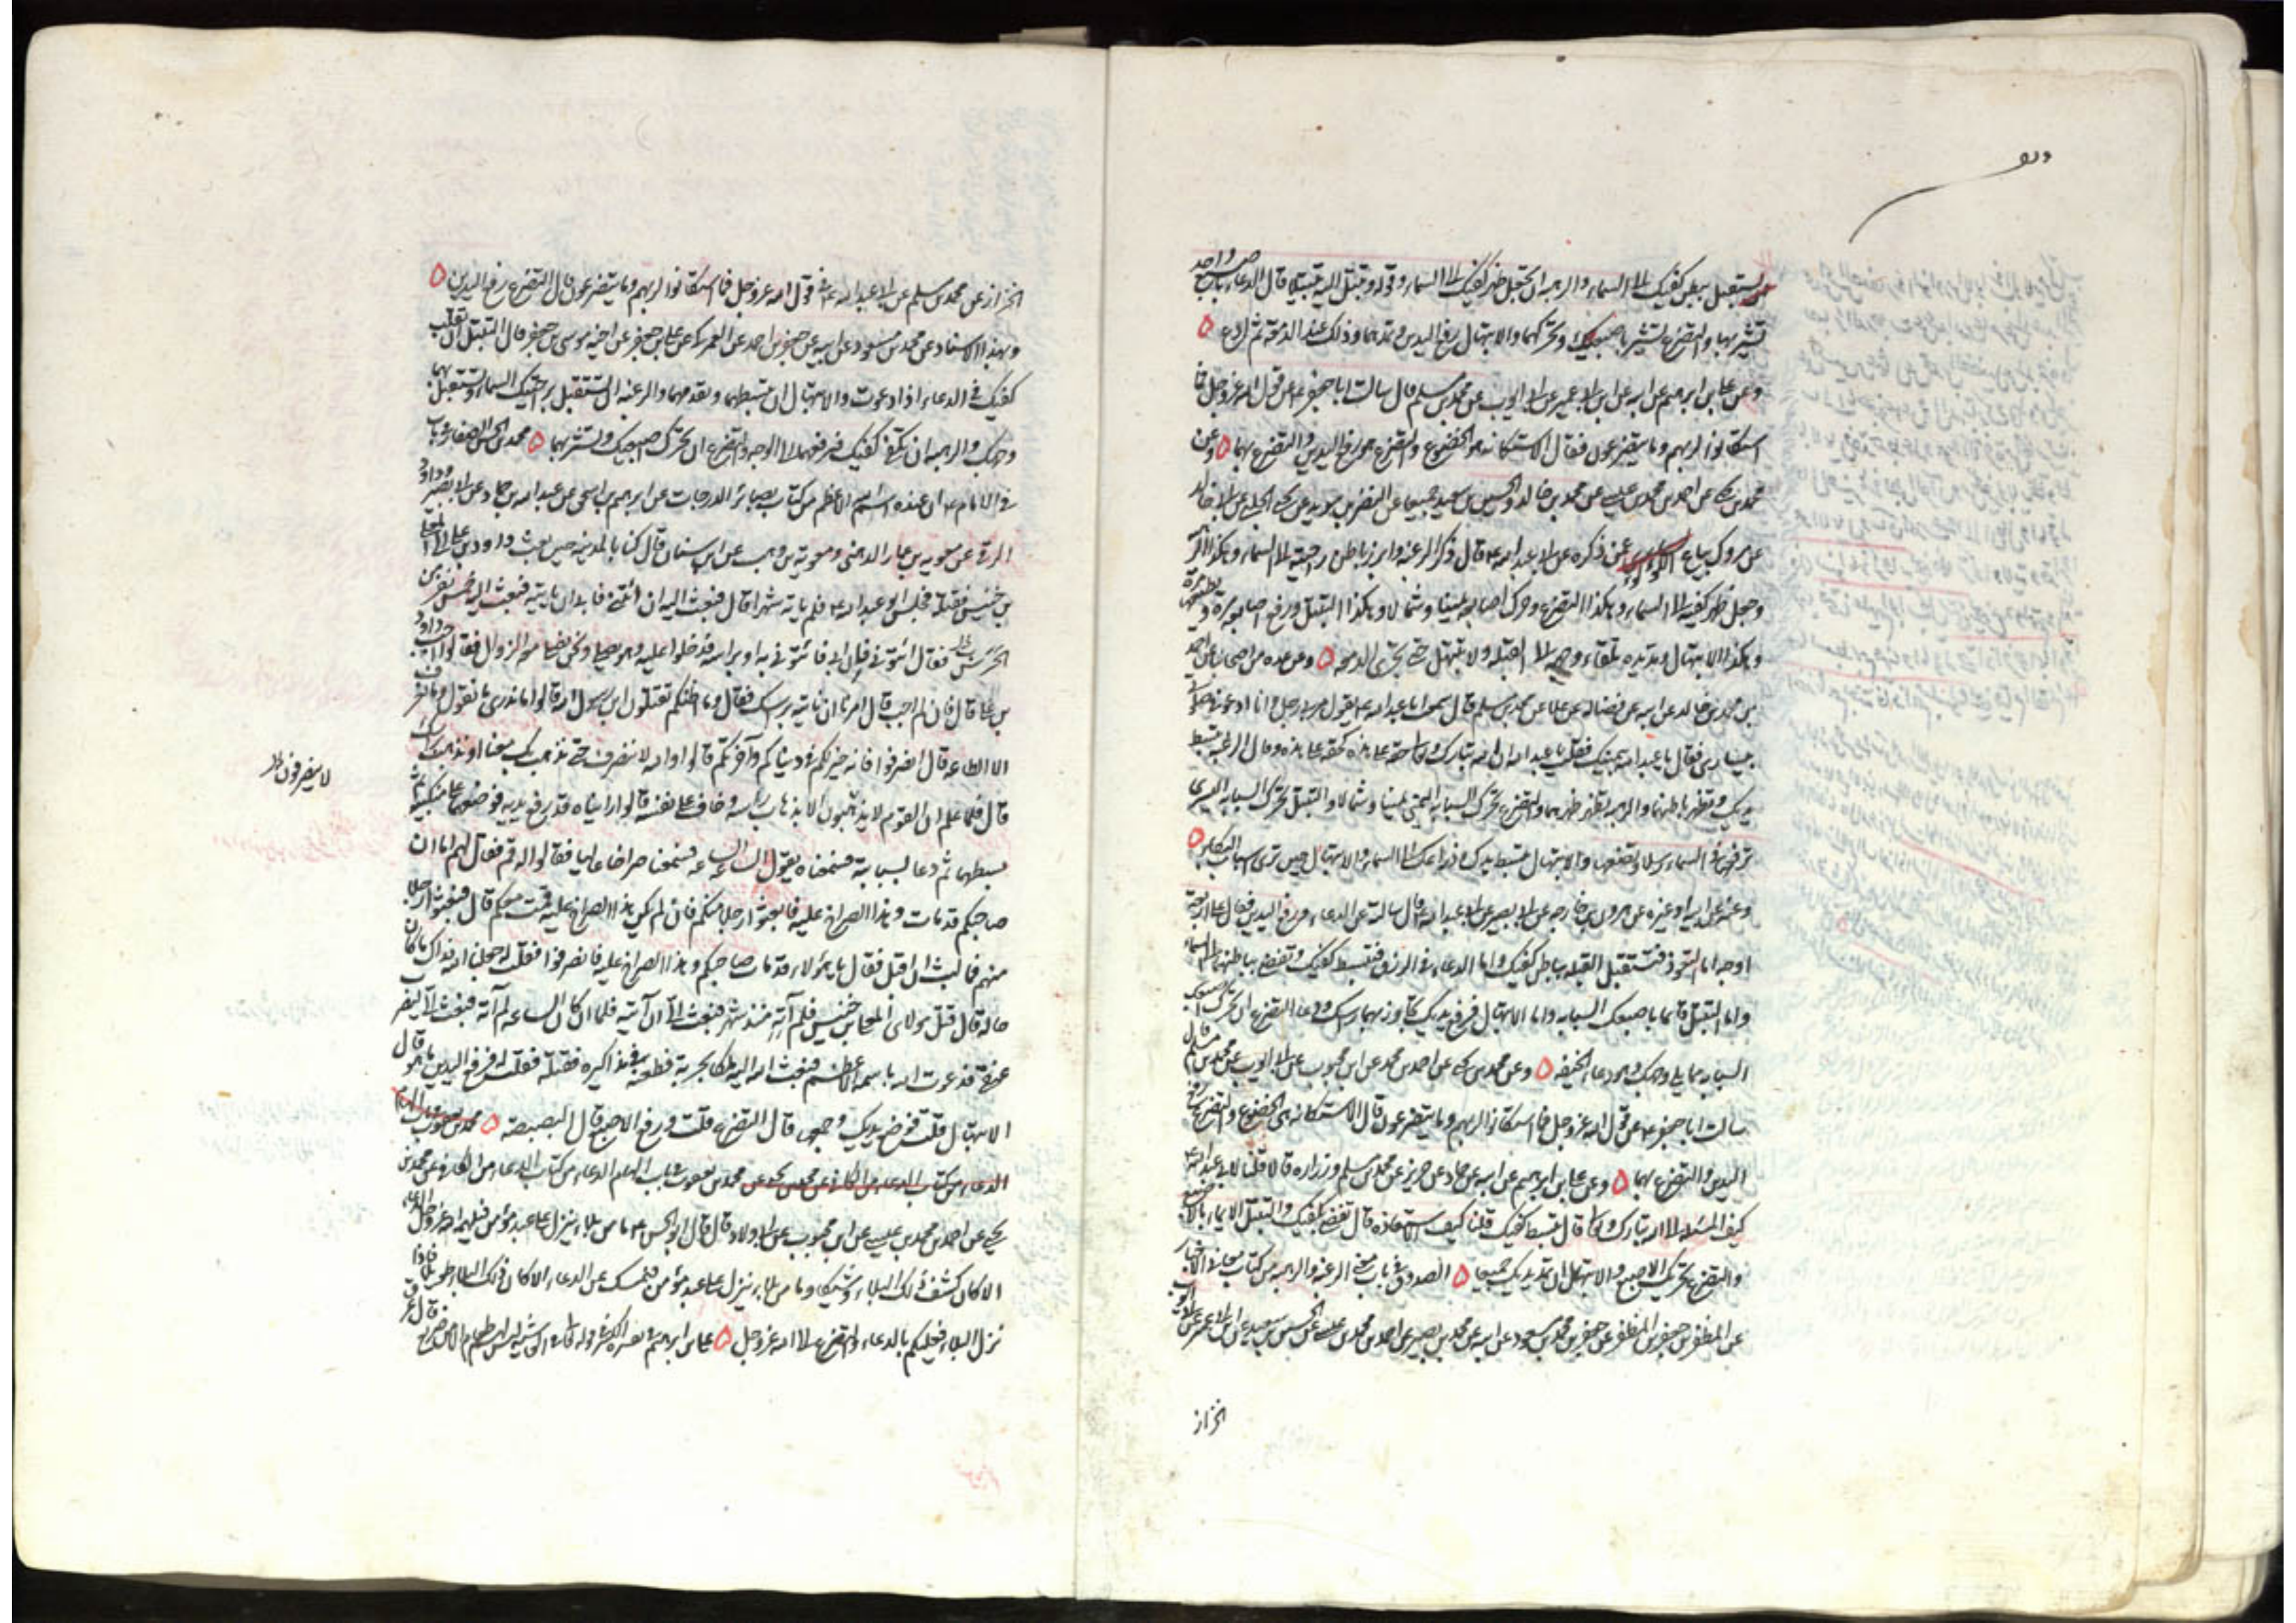 تستقبل ببطن كفيك الى السماء والرهبة ان تجعل ظهر كفيك الى السماء وقوله وتبتل اليه تبتيلا قال الدعاء باصبع واحدة
تشير بها والتضرع تشير باصبعيك وتحركهما والابتهال رفع اليدين وتمدهما وذلك عند الدمعة ثم ادع
وعن علي بن ابرهيم عن ابيه عن ابن ابي عمير عن ابي ايوب عن محمد بن مسلم قال سالت ابا جعفر ع عن قول الله عز وجل فما
استكانوا لربهم وما يتضرعون فقال الاستكانة هو الخضوع والتضرع هو رفع اليدين والتضرع بهما وعن
محمد بن يحيى عن احمد بن محمد بن عيسى عن محمد بن خالد والحسين بن سعيد جميعا عن النضر بن سويد عن يحيى الحلبي عن ابي خالد
عن مروك بياع اللؤلؤ عمن ذكره عن ابي عبد الله ع قال ذكر الرغبة وابرز باطن راحتيه الى السماء وهكذا الرهبة
وجعل ظهر كفيه الى السماء وهكذا التضرع وحرك اصابعه يمينا وشمالا وهكذا التبتل ورفع اصابعه مرة ويضعها مرة
وهكذا الابتهال ومد يده تلقاء وجهه الى القبلة ولا تبتهل حتى تجري الدمعة وعن عدة من اصحابنا عن احمد
بن محمد بن خالد عن ابيه عن فضالة عن علا عن محمد بن مسلم قال سمعت ابا عبد الله ع يقول مر بي رجل وانا ادعو في صلوتي
بيساري فقال يا عبد الله بيمينك فقلت يا عبد الله ان لله تبارك وتعالى حقا على هذه كحقه على هذه وقال الرغبة تبسط
يديك وتظهر باطنهما والرهبة تظهر ظهرهما والتضرع تحرك السبابة اليمنى يمينا وشمالا والتبتل تحرك السبابة اليسرى
ترفعها في السماء رسلا وتضعها والابتهال تبسط يدك وذراعك الى السماء والابتهال حين ترى اسباب البكاء
وعنه عن ابيه او غيره عن هرون بن خارجه عن ابي بصير عن ابي عبد الله ع قال سالته عن الدعاء ورفع اليدين فقال على اربعة
اوجه اما التعوذ فتستقبل القبلة بباطن كفيك واما الدعاء في الرزق فتبسط كفيك وتفضي بباطنهما الى السماء
واما التبتل فايما باصبعك السبابة واما الابتهال فرفع يديك تجاوز بهما راسك ودعاء التضرع ان تحرك اصبعك
السبابة مما يلي وجهك وهو دعاء الخيفة وعن محمد بن يحيى عن احمد بن محمد عن ابن محبوب عن ابي ايوب عن محمد بن مسلم قال
سالت ابا جعفر ع عن قول الله عز وجل فما استكانوا لربهم وما يتضرعون قال الاستكانة هي الخضوع والتضرع رفع
اليدين والتضرع بهما وعن علي بن ابرهيم عن ابيه عن حماد عن حريز عن محمد بن مسلم وزرارة قالا قلنا لابي عبد الله ع
كيف المسئلة الى الله تبارك وتعالى قال تبسط كفيك قلنا كيف الاستعاذة قال تفضي بكفيك والتبتل الايماء بالاصبع
والتضرع تحريك الاصبع والابتهال ان تمد يديك جميعا الصدوق في باب معنى الرغبة والرهبة من كتاب معاني الاخبار
عن المظفر بن جعفر بن المظفر عن جعفر بن محمد بن مسعود عن ابيه عن محمد بن نصير عن احمد بن محمد بن عيسى عن الحسين بن سعيد عن ابن ابي عمير عن ابي ايوب
الخزاز
الخزاز عن محمد بن مسلم عن ابي عبد الله ع في قول الله عز وجل فما استكانوا لربهم وما يتضرعون قال التضرع رفع اليدين
وبهذا الاسناد عن محمد بن مسعود عن ابيه عن جعفر بن احمد عن العمركي عن علي بن جعفر عن اخيه موسى بن جعفر قال التبتل ان تقلب
كفيك في الدعاء اذا دعوت والابتهال ان تبسطهما وتقدمهما والرغبة ان تستقبل براحتيك السماء وتستقبل بهما
وجهك والرهبة ان تكفئ كفيك فترفعهما الى الوجه والتضرع ان تحرك اصبعيك وتشير بهما محمد بن الحسن الصفار في باب
في الامام ع ان عنده اسم الله الاعظم من كتاب بصائر الدرجات عن ابرهيم بن اسحق عن عبد الله بن حماد عن ابي بصير وداود
الرقي عن معوية بن عمار الدهني ومعوية بن وهب عن ابن سنان قال كنا بالمدينة حين بعث داود بن علي الى المعلى
بن خنيس فقتله فجلس ابو عبد الله ع فلم ياته شهرا قال فبعث اليه ان ائتني فابى ان ياتيه فبعث اليه خمس نفر من
الحرس فقال ائتوني به فان ابى فائتوني به او براسه فدخلوا عليه وهو يصلي ونحن نصلي معه الزوال فقالوا اجب داود
بن علي قال فان لم اجب قال امرنا ان ناتيه براسك فقال وما اظنكم تقتلون ابن رسول الله قالوا ما ندري ما تقول وما نعرف
الا الطاعة قال انصرفوا فانه خير لكم في دنياكم وآخرتكم قالوا والله لا ننصرف حتى نذهب بك معنا او نذهب براسك
لا ينصرفون ظ
قال فلما علم ان القوم لا يذهبون الا بذهاب راسه وخاف على نفسه قالوا رايناه قد رفع يديه فوضعهما على منكبيه ثم
بسطهما ثم دعا بسبابته فسمعناه يقول الساعة الساعة فسمعنا صراخا عاليا فقالوا له قم فقال لهم اما ان
صاحبكم قد مات وهذا الصراخ عليه فابعثوا رجلا منكم فان لم يكن هذا الصراخ عليه قمت معكم قال فبعثوا رجلا
منهم فما لبث ان اقبل فقال يا هؤلاء قد مات صاحبكم وهذا الصراخ عليه فانصرفوا فقلت له جعلنا الله فداك ما كان
حاله قال قتل مولاي المعلى بن خنيس فلم آته منذ شهر فبعث الي ان آتيه فلما ان كان الساعة لم آته فبعث الي ليضرب
عنقي فدعوت الله باسمه الاعظم فبعث الله اليه ملكا بحربة فطعنه في مذاكيره فقتله فقلت له فرفع اليدين ما هو قال
الابتهال فقلت فوضع يديك وجمعها قال التضرع قلت ورفع الاصبع قال البصبصة محمد بن يعقوب في باب الهام
الدعاء من كتاب الدعاء من الكافي عن محمد بن يحيى عن محمد بن يعقوب في باب الهام الدعاء من كتاب الدعاء من الكافي عن محمد بن
يحيى عن احمد بن محمد بن عيسى عن ابن محبوب عن ابي ولاد قال قال ابو الحسن ع ما من بلاء ينزل على عبد مؤمن فيلهمه الله عز وجل الدعاء
الا كان كشف ذلك البلاء وشيكا وما من بلاء ينزل على عبد مؤمن فيمسك عن الدعاء الا كان ذلك البلاء طويلا فاذا
نزل البلاء فعليكم بالدعاء والتضرع الى الله عز وجل علي بن ابرهيم في تفسيره الكبير في قوله تعالى ليس لهم طعام الا من ضريع قال عرق